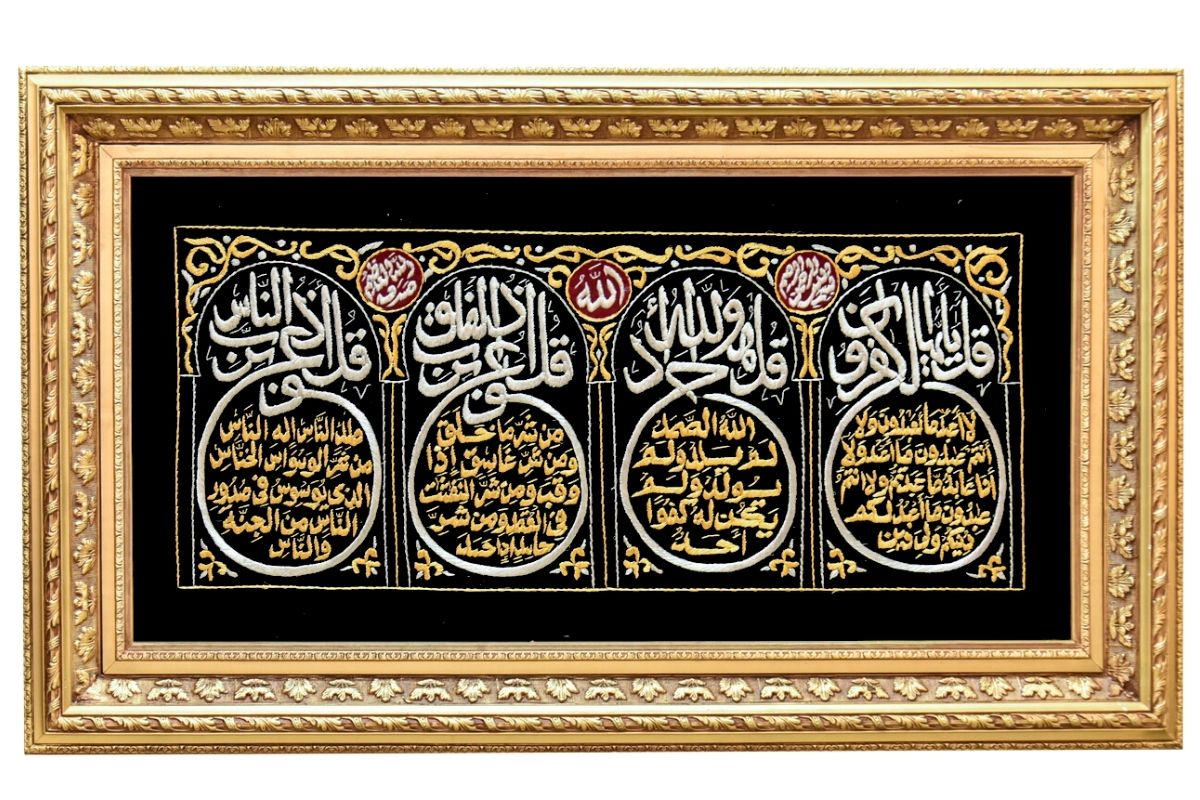 بسم الله الرحمن الرحيم
الله
قل يايها الكافرون
لا اعبد ما تعبدون ولا
انتم عبدون ما اعبد ولا
انا عابد ما عبدتم ولا انتم
عبدون ما اعبد لكم
دينكم ولي دين
قل هو الله أحد
الله الصمد
لم يلد ولم
يولد ولم
يكن له كفوا
احد
قل اعوذ برب الفلق
من شر ما خلق
ومن شر غاسق إذا
وقب ومن شر النفثت
في العقد ومن شر
حاسد إذا حسد
قل اعوذ برب الناس
ملك الناس اله الناس
من شر الوسواس الخناس
الذي يوسوس في صدور
الناس من الجنة
والناس